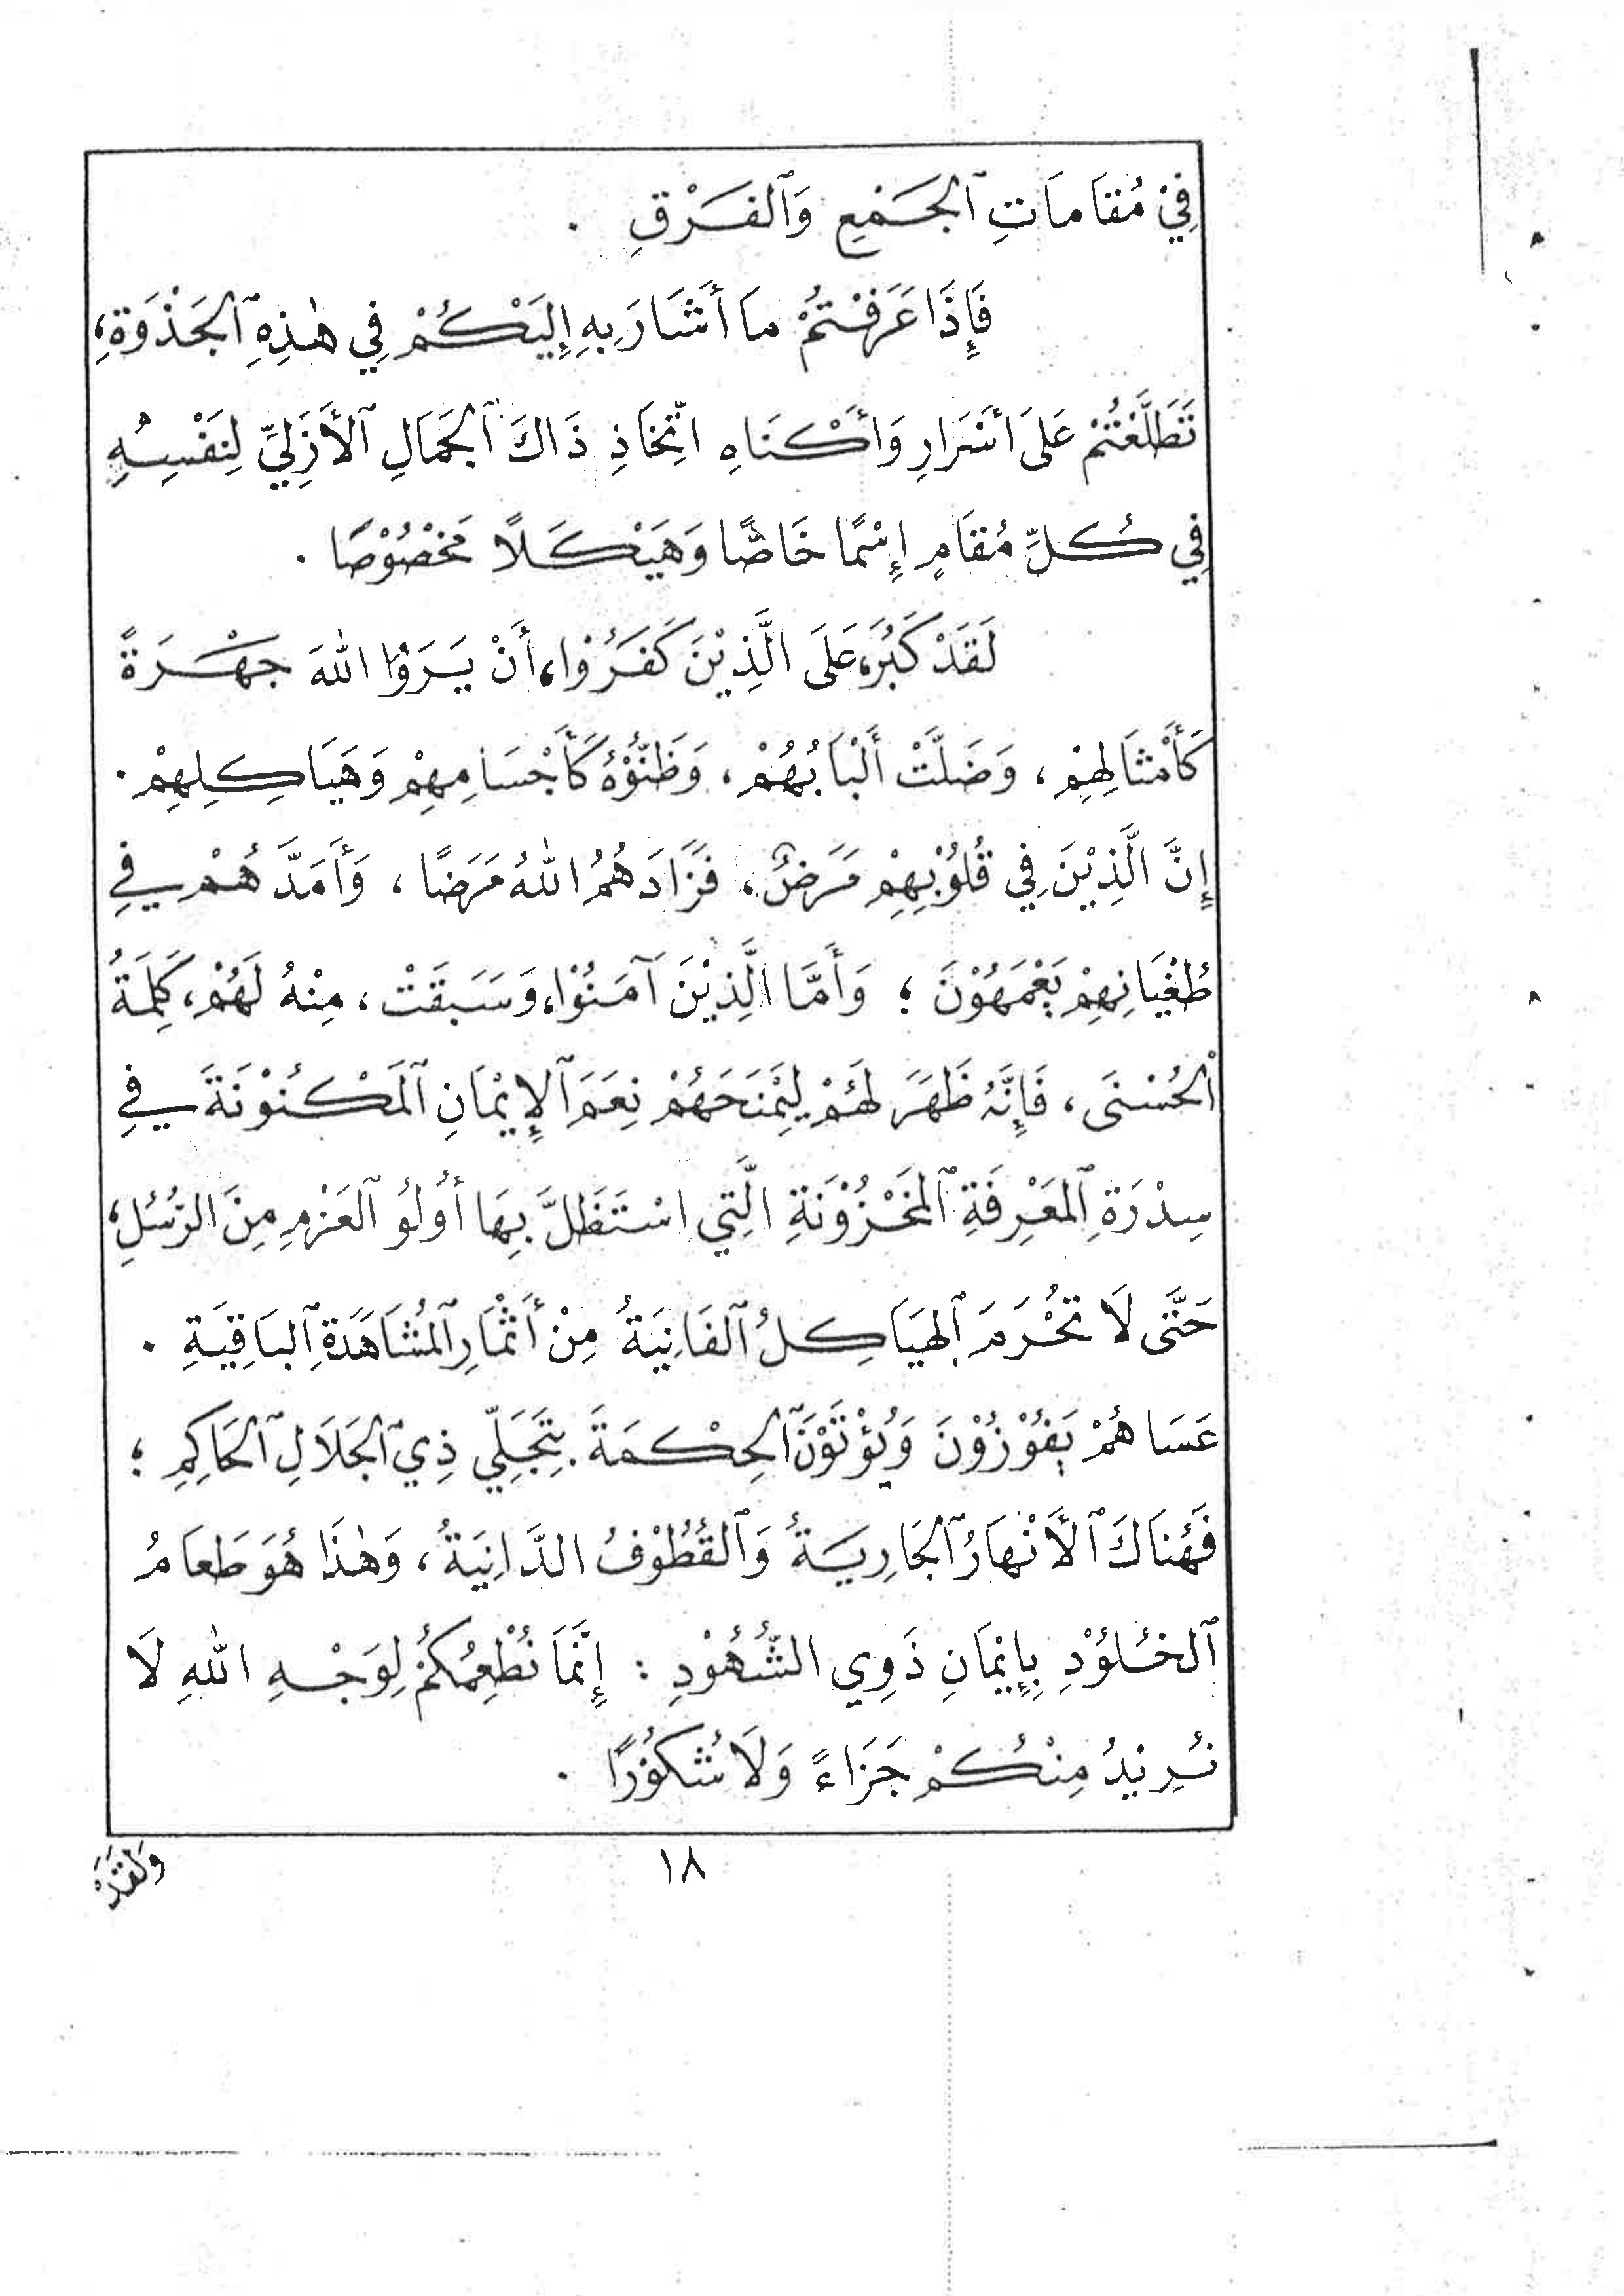 فِيْ مُقَامَاتِ ٱلجَمْعِ وَٱلفَرْقِ .
فَإِذَا عَرَفْتُمْ مَا أَشَارَ بِهِ إِلَيْكُمْ فِي هٰذِهِ ٱلجَذْوَةِ،
تَطَلَّعْتُمْ عَلَى أَسْرَارِ وَأَكْنَاهِ اتِّخَاذِ ذَاكَ ٱلجَمَالِ ٱلأَزَلِيِّ لِنَفْسِهِ
فِي كُلِّ مُقَامٍ إِسْمًا خَاصًّا وَهَيْكَلًا مَخْصُوْصًا .
لَقَدْ كَبُرَ، عَلَى الَّذِيْنَ كَفَرُوْا، أَنْ يَرَوْا اللهَ جَهْرَةً
كَأَمْثَالِهِمْ، وَضَلَّتْ أَلْبَابُهُمْ، وَظَنُّوْهُ كَأَجْسَامِهِمْ وَهَيَاكِلِهِمْ .
إِنَّ الَّذِيْنَ فِي قُلُوْبِهِمْ مَرَضٌ، فَزَادَهُمُ اللهُ مَرَضًا، وَأَمَدَّهُمْ فِي
طُغْيَانِهِمْ يَعْمَهُوْنَ ؛ وَأَمَّا الَّذِيْنَ آمَنُوْا، وَسَبَقَتْ، مِنْهُ لَهُمْ، كَلِمَةُ
ٱلحُسْنَى، فَإِنَّهُ ظَهَرَ لَهُمْ لِيَمْنَحَهُمْ نِعَمَ ٱلإِيْمَانِ ٱلمَكْنُوْنَةَ فِي
سِدْرَةِ ٱلمَعْرِفَةِ ٱلمَخْزُوْنَةِ الَّتِي اسْتَظَلَّ بِهَا أُوْلُو ٱلعَزْمِ مِنَ الرُّسُلِ،
حَتَّى لَا تُحْرَمَ ٱلهَيَاكِلُ ٱلفَانِيَةُ مِنْ أَثْمَارِ ٱلمُشَاهَدَةِ ٱلبَاقِيَةِ .
عَسَاهُمْ يَفُوْزُوْنَ وَيُؤْتَوْنَ ٱلحِكْمَةَ بِتَجَلِّي ذِي ٱلجَلَالِ ٱلحَاكِمِ ؛
فَهُنَاكَ ٱلأَنْهَارُ ٱلجَارِيَةُ وَٱلقُطُوْفُ الدَّانِيَةُ، وَهٰذَا هُوَ طَعَامُ
ٱلخُلُوْدِ بِإِيْمَانِ ذَوِي الشُّهُوْدِ : إِنَّمَا نُطْعِمُكُمْ لِوَجْهِ اللهِ لَا
نُرِيْدُ مِنْكُمْ جَزَاءً وَلَا شُكُوْرًا .
١٨
وَلَقَدْ